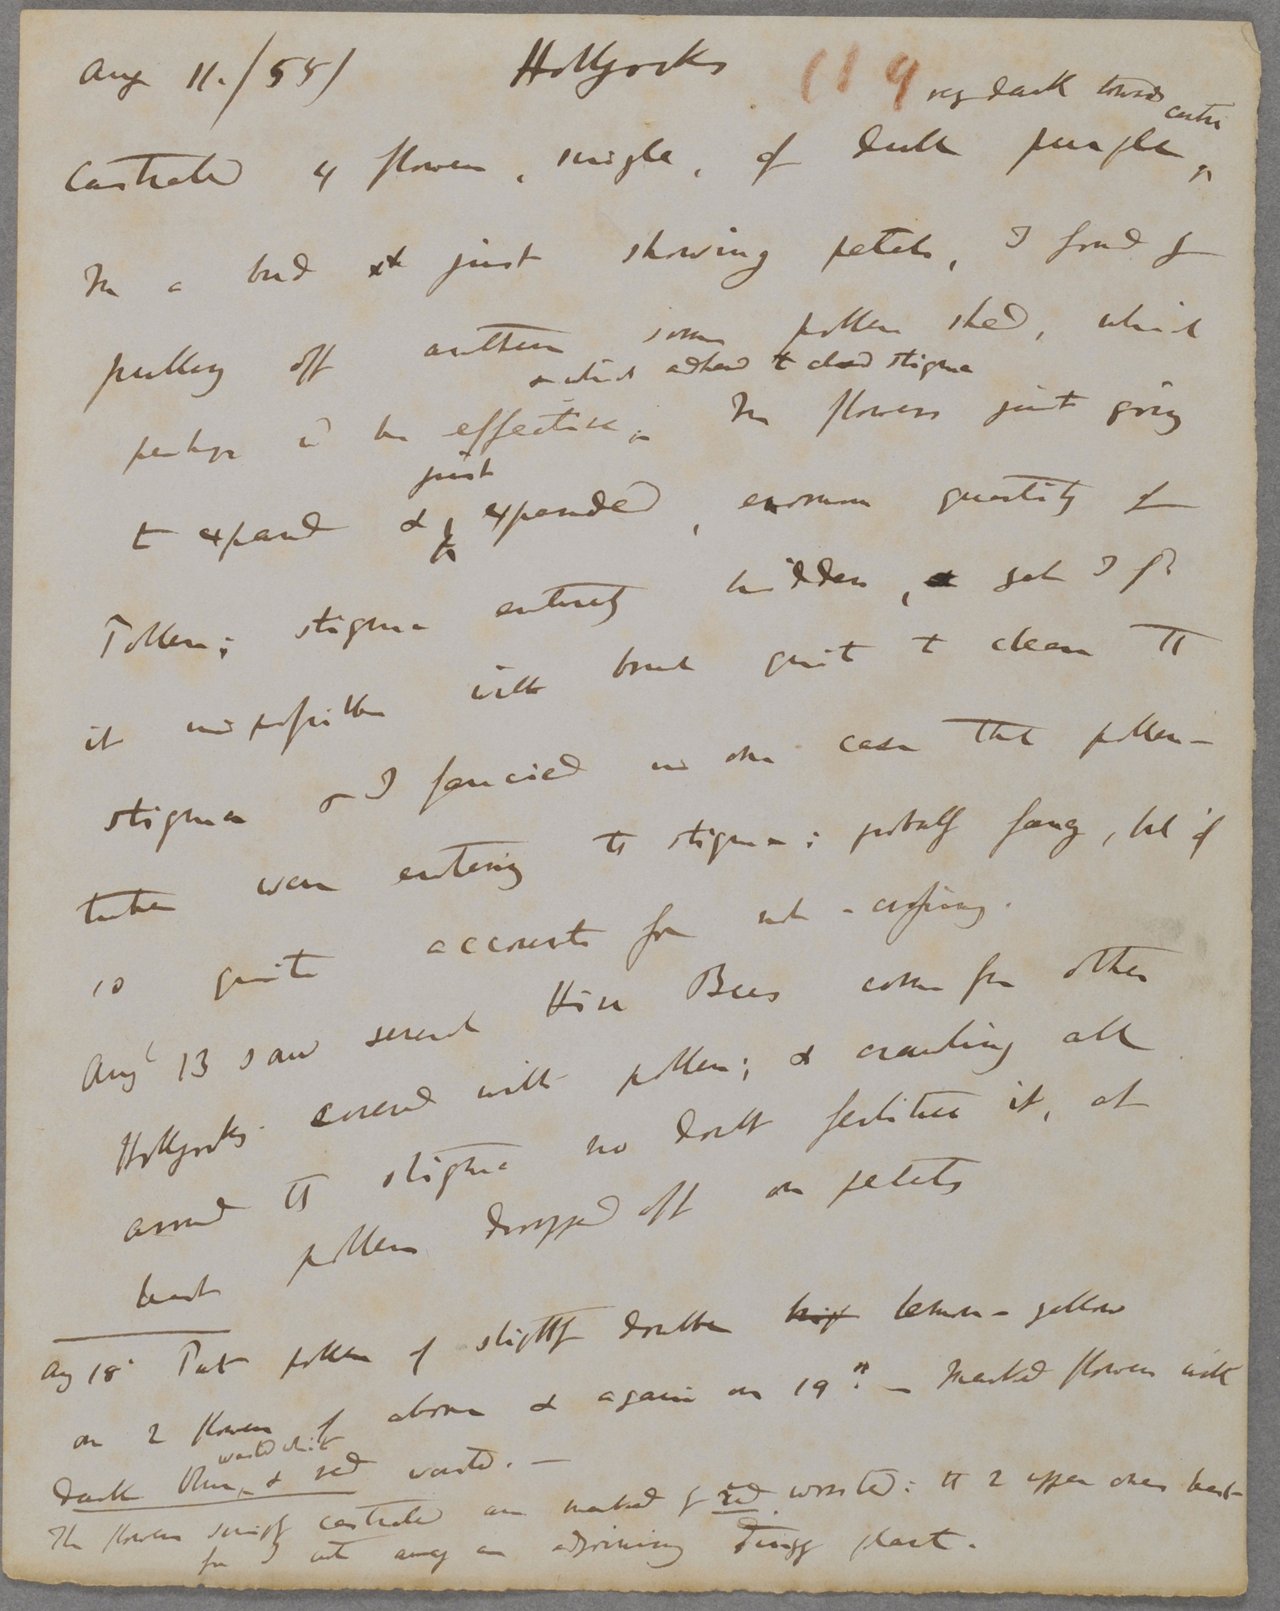 Aug 11./55/ Hollyocks (19
very dark towards centre
Castrated 4 flowers, single, of dull purple,
In a bud just showing petals, I found
pulling off anthers some pollen shed, which
& which adhered to closed stigma
perhaps be effective. In flowers just going
just
to expand & expanded, enormous quantity of
Pollen; stigma entirely hidden, & yet I
it impossible with brush quite to clean the
stigma & I fancied in one case that pollen-
tubes were entering the stigma: probably fancy, but if
so quite accounts for not-crossing.
Augt 13 saw several Hive Bees come from other
Hollyocks covered with pollen; & crawling all
around the stigma no doubt fertilises it, at
least pollen dropped off on petals
Aug 18 Put pollen of slightly double lemon-yellow
on 2 flowers of above & again on 19th. — Marked flowers with
worsted white
dark blue, & red worsted. —
The flowers simply castrated are marked red worsted: the 2 upper ones best
for I cut away an adjoining plant.